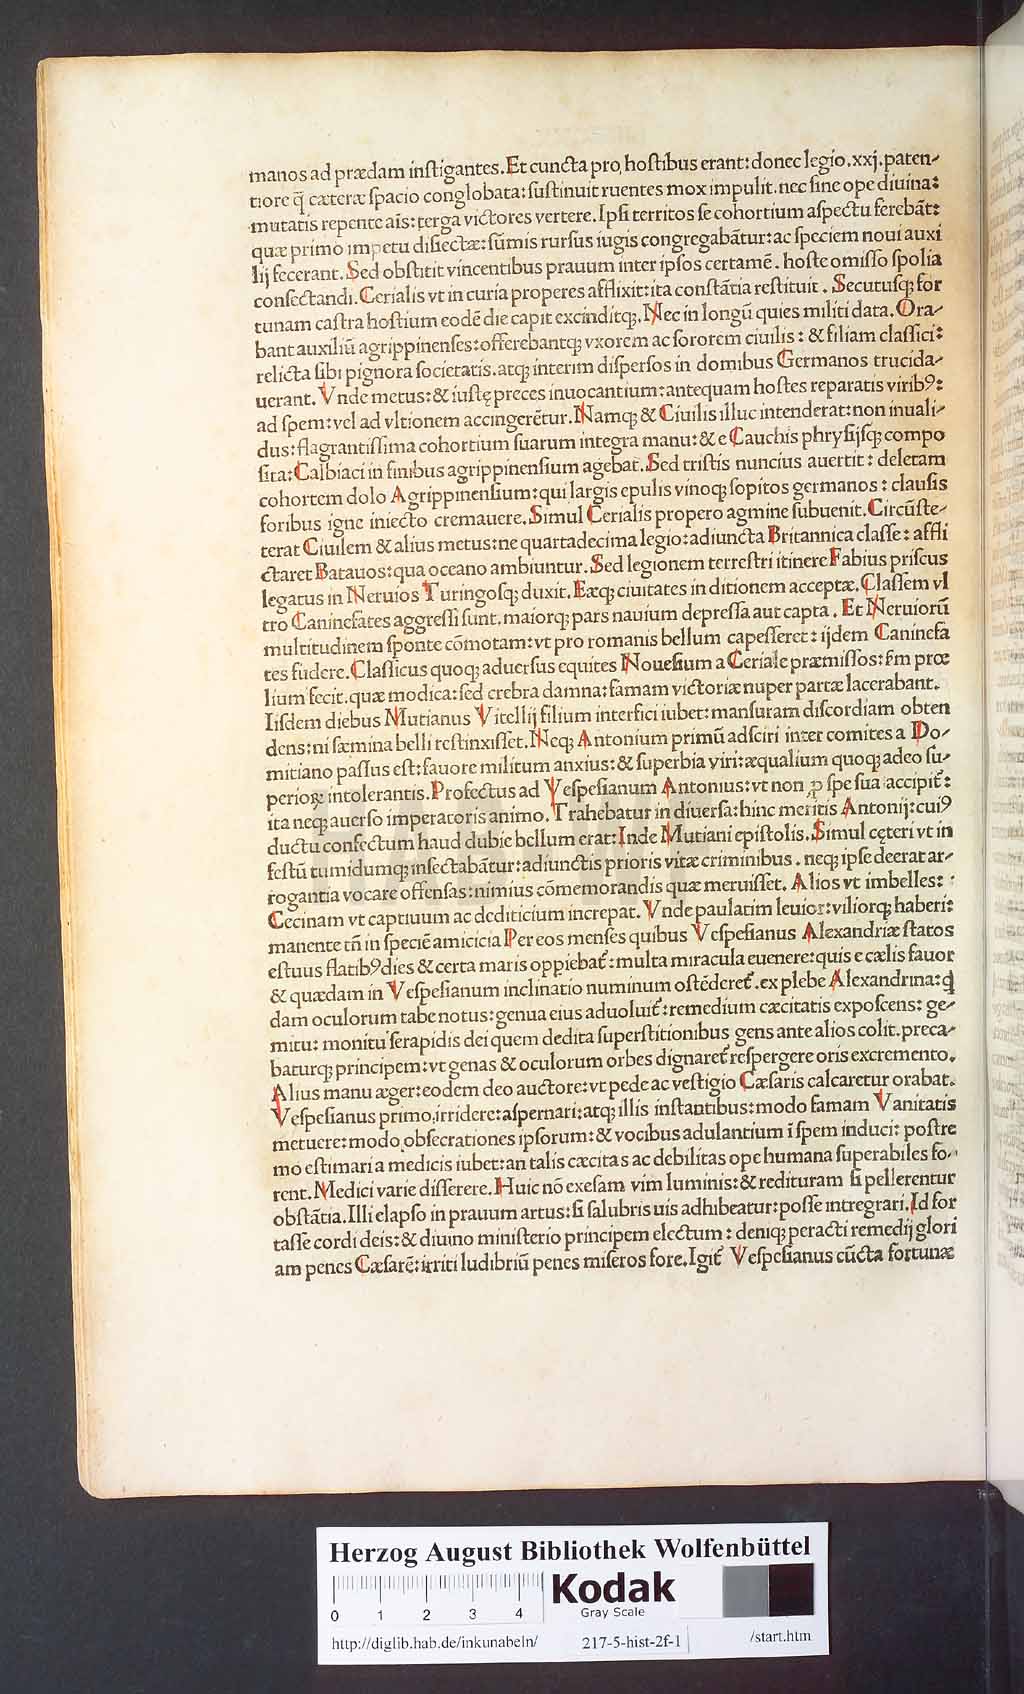 manos ad prædam inſtigantes. Et cuncta pro hoſtibus erant: donec legio .xxj. paten-
tiore q̃ cæteræ ſpacio conglobata: ſuſtinuit ruentes mox impulit. nec ſine ope diuina:
mutatis repente aĩs: terga victores vertere. Ipſi territos ſe cohortium aſpectu ferebãt:
quæ primo impetu diſiectæ: ſũmis rurſus iugis congregabãtur: ac ſpeciem noui auxi
lij fecerant. Sed obſtitit vincentibus prauum inter ipſos certamẽ. hoſte omiſſo ſpolia
conſectandi. Cerialis vt in curia properes afflixit: ita conſtãtia reſtituit. Secutuſq; for
tunam caſtra hoſtium eodẽ die capit excinditq;. Nec in longũ quies militi data. Ora-
bant auxiliũ agrippinenſes: offerebantq; vxorem ac ſororem ciuilis: & filiam claſſici:
relicta ſibi pignora ſocietatis. atq; interim diſperſos in domibus Germanos trucida-
uerant. Vnde metus: & iuſtę preces inuocantium: antequam hoſtes reparatis viribꝰ:
ad ſpem: vel ad vltionem accingerẽtur. Namq; & Ciuilis illuc intenderat: non inuali-
dus: flagrantiſſima cohortium ſuarum integra manu: & e Cauchis phryſijſq; compo
ſita: Calbiaci in finibus agrippinenſium agebat. Sed triſtis nuncius auertit: deletam
cohortem dolo Agrippinenſium: qui largis epulis vinoq; ſopitos germanos: clauſis
foribus igne iniecto cremauere. Simul Cerialis propero agmine ſubuenit. Circũſte-
terat Ciuilem & alius metus: ne quartadecima legio: adiuncta Britannica claſſe: affli
ctaret Batauos: qua oceano ambiuntur. Sed legionem terreſtri itinere Fabius priſcus
legatus in Neruios Turingoſq; duxit. Eæq; ciuitates in ditionem acceptæ. Claſſem vl
tro Caninefates aggreſſi ſunt. maiorq; pars nauium depreſſa aut capta. Et Neruiorũ
multitudinem ſponte cõmotam: vt pro romanis bellum capeſſeret: ijdem Caninefa
tes fudere. Claſſicus quoq; aduerſus equites Noueſium a Ceriale præmiſſos: ſm prœ
lium fecit. quæ modica: ſed crebra damna: famam victoriæ nuper partæ lacerabant.
Iiſdem diebus Mutianus Vitellij filium interfici iubet: manſuram diſcordiam obten
dens: ni ſæmina belli reſtinxiſſet. Neq; Antonium primũ adſciri inter comites a Do-
mitiano paſſus eſt: fauore militum anxius: & ſuperbia viri: æqualium quoq; adeo ſu-
perioꝝ intolerantis. Profectus ad Veſpeſianum Antonius: vt non ꝓ ſpe ſua accipit̃:
ita neq; auerſo imperatoris animo. Trahebatur in diuerſa: hinc meritis Antonij: cuiꝰ
ductu confectum haud dubie bellum erat: Inde Mutiani epiſtolis. Simul cęteri vt in
feſtũ tumidumq; inſectabãtur: adiunctis prioris vitæ criminibus. neq; ipſe deerat ar-
rogantia vocare offenſas: nimius cõmemorandis quæ meruiſſet. Alios vt imbelles:
Cecinam vt captiuum ac dediticium increpat. Vnde paulatim leuior: viliorq; haberi:
manente tñ in ſpeciẽ amicicia Per eos menſes quibus Veſpeſianus Alexandriæ ſtatos
eſtuus flatibꝰ dies & certa maris oppiebat̃: multa miracula euenere: quis e cælis fauor
& quædam in Veſpeſianum inclinatio numinum oſtẽderet̃. ex plebe Alexandrina: q
dam oculorum tabe notus: genua eius aduoluit̃: remedium cæcitatis expoſcens: ge-
mitu: monitu ſerapidis dei quem dedita ſuperſtitionibus gens ante alios colit. preca-
baturq; principem: vt genas & oculorum orbes dignaret̃ reſpergere oris excremento.
Alius manu æger: eodem deo auctore: vt pede ac veſtigio Cæſaris calcaretur orabat.
Veſpeſianus primo irridere: aſpernari: atq; illis inſtantibus: modo famam Vanitatis
metuere: modo obſecrationes ipſorum: & vocibus adulantium ĩ ſpem induci: poſtre
mo eſtimari a medicis iubet: an talis cæcitas ac debilitas ope humana ſuperabiles fo-
rent. Medici varie diſſerere. Huic nõ exeſam vim luminis: & redituram ſi pellerentur
obſtãtia. Illi elapſo in prauum artus: ſi ſalubris uis adhibeatur: poſſe intregrari. Id for
taſſe cordi deis: & diuino miniſterio principem electum: deniq; peracti remedij glori
am penes Cæſarẽ: irriti ludibriũ penes miſeros fore. Igit̃ Veſpeſianus cũcta fortunæ
Herzog August Bibliothek Wolfenbüttel
0 1 2 3 4
Kodak
Gray Scale
http://diglib.hab.de/inkunabeln/ 217-5-hist-2f-1 /start.htm